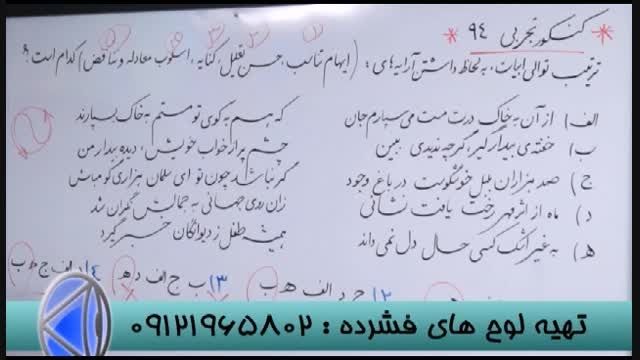 * کنکور تجربی ۹۴ *
① ② ③ ④ ⑤
ترتیب توالی ابیات، به لحاظ داشتن آرایه های: (ایهام تناسب، حسن تعلیل، کنایه، اسلوب معادله و تناقض) کدام است؟
الف) از آن به خاک درت مست می سپارم جان که هم به کوی تو مستم به خاک بسپارند
ب) خفته ی بیدار گیر، گرچه ندیدی ببین چشم پر از خواب خویش، دیده بیدار من
ج) صد هزاران بلبل خوشگوست در باغ وجود گر نباشد چون تو ای سلمان هزاری گو مباش
د) ماه از اثر مهر رخت یافت نشانی زان روی جهانی به جمالش نگران شد
ه) به غیر اشک کسی حال دل نمی داند همیشه طفل ز دیوانگان خبر گیرد
۲) ج د الف ه ب ۳) ب ج الف د ه ۴) د الف ج ه ب
تهیه لوح های فشرده : ۰۹۱۲۱۹۶۵۸۰۲